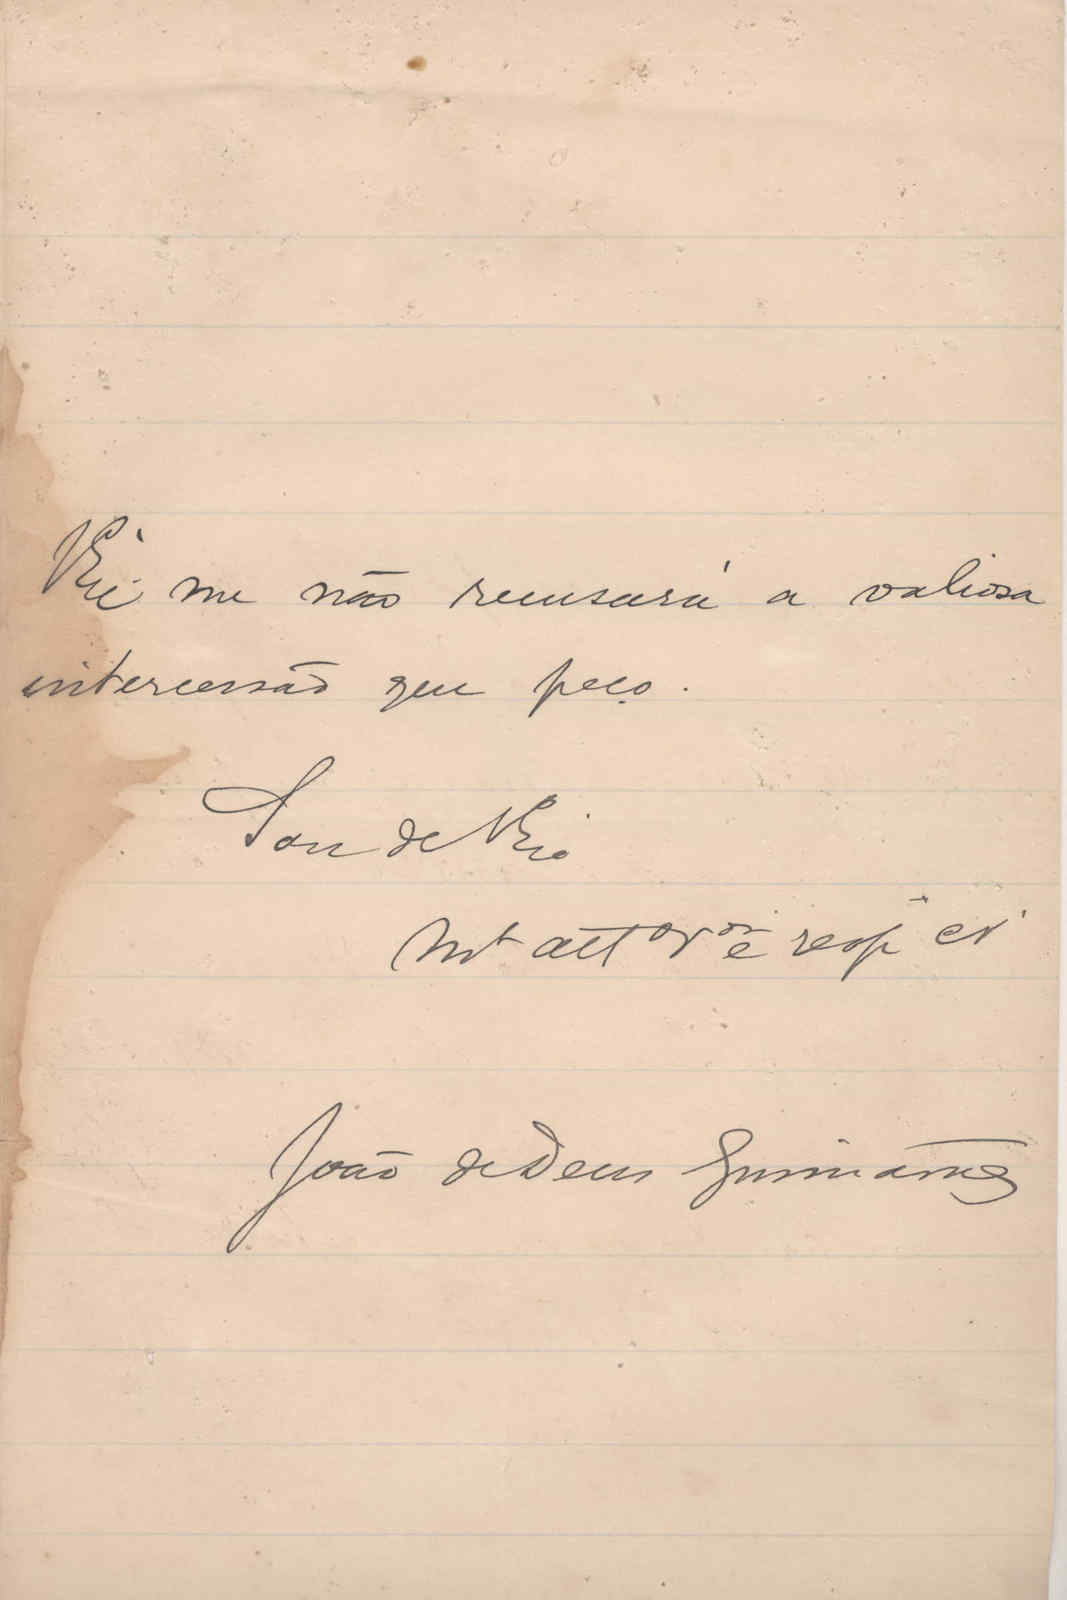 V. Exª me não recusará a valiosa
intercessão que peço.
Sou de V. Exª
Mt att
João de Deus Guimarães